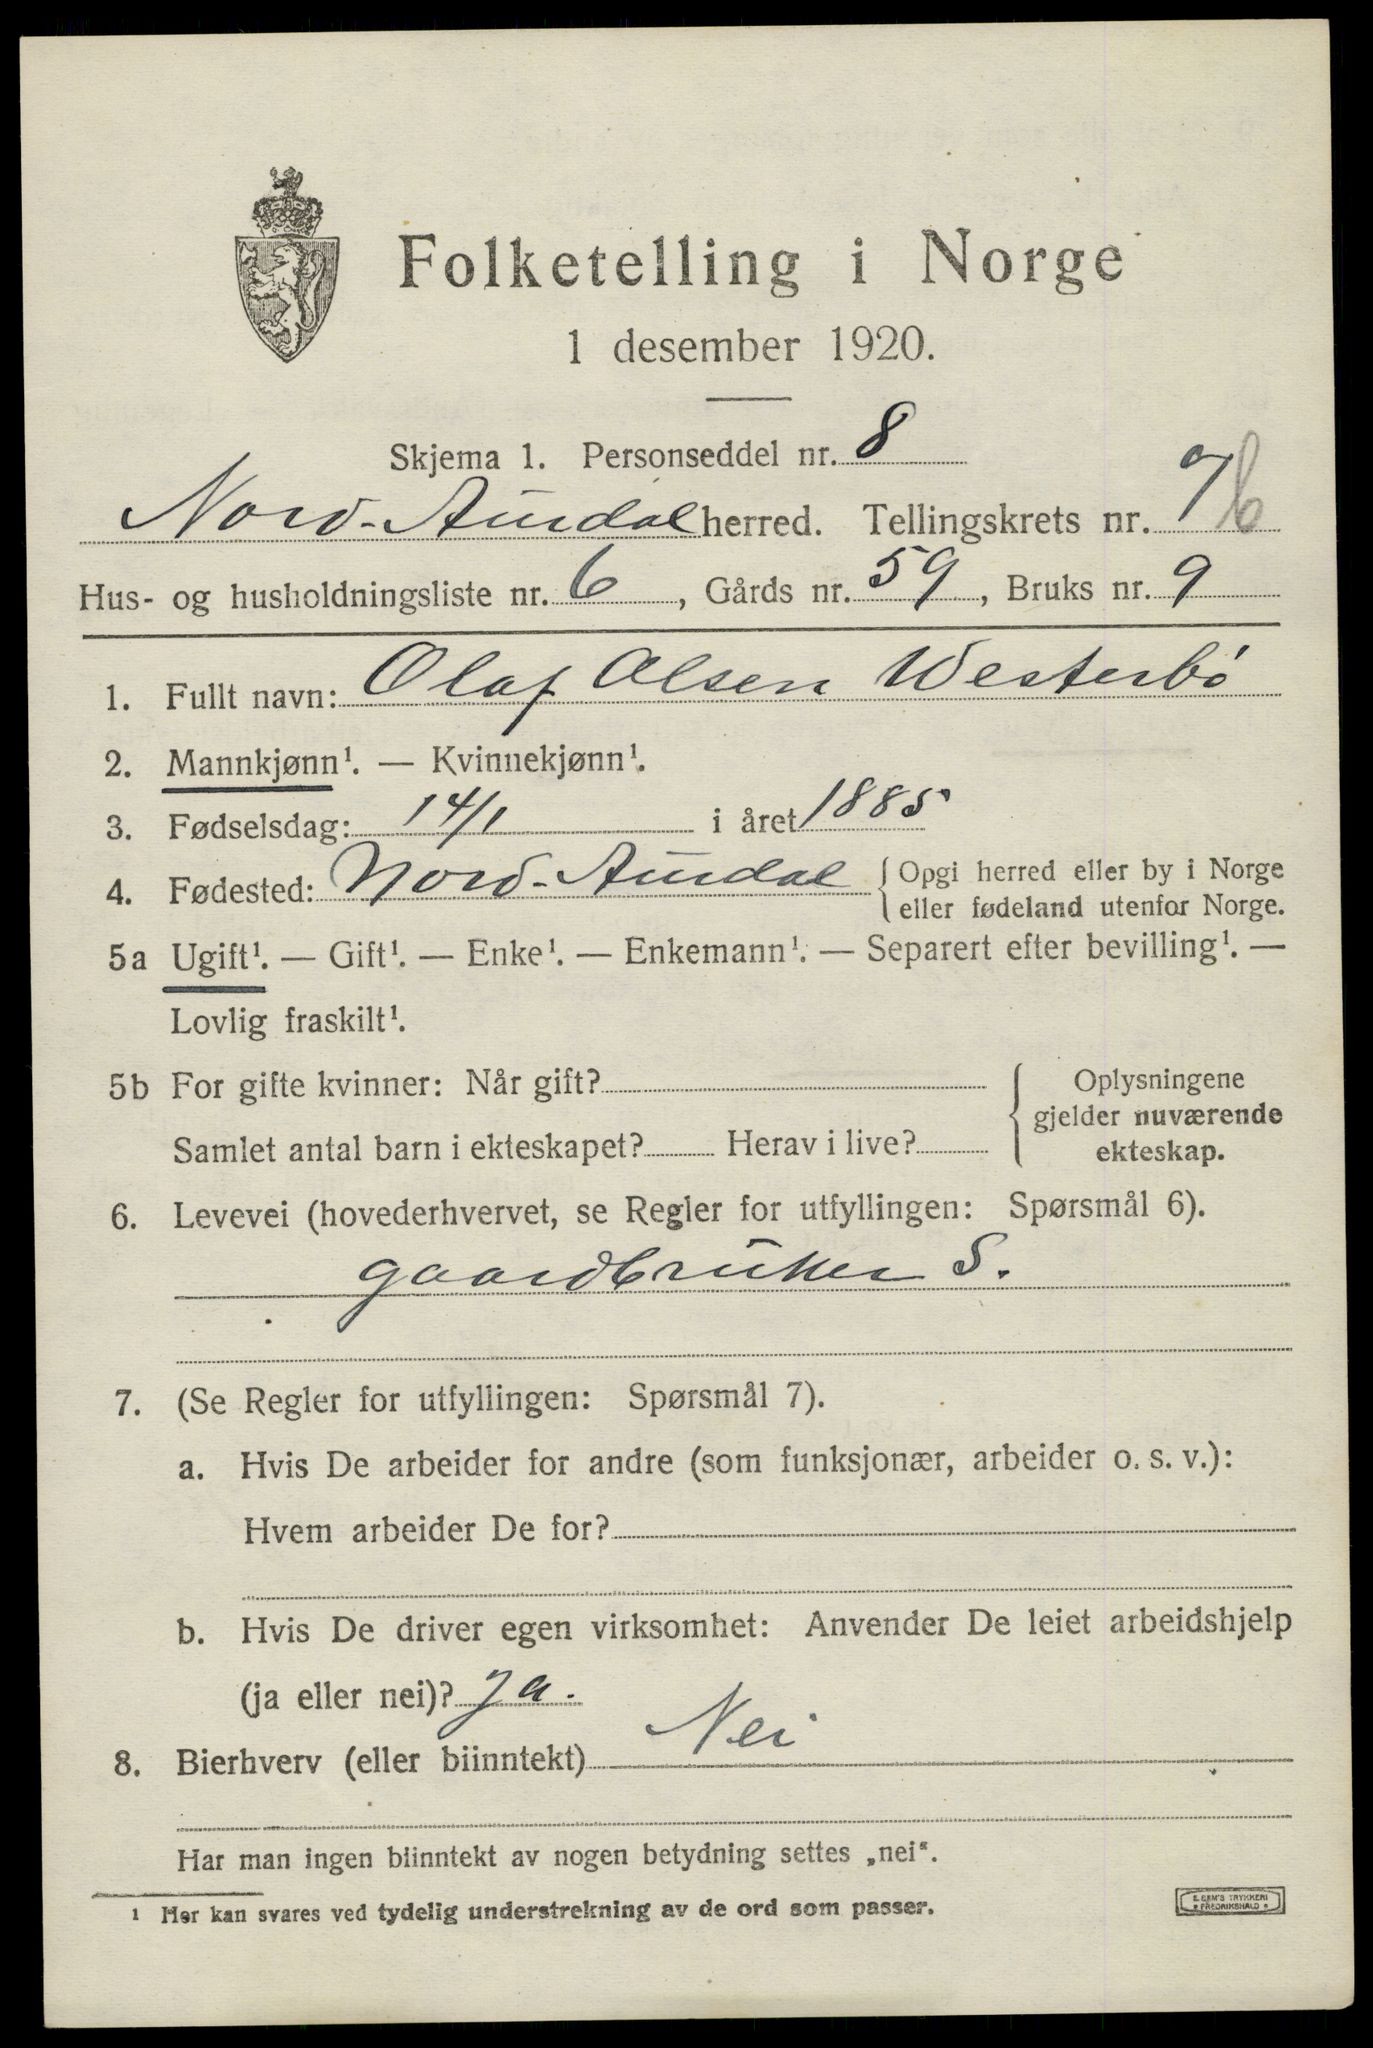 Folketelling i Norge
1 desember 1920.
Skjema 1. Personseddel nr. 8
Nord-Aurdal herred. Tellingskrets nr. 7 6
Hus- og husholdningsliste nr. 6, Gårds nr. 59, Bruks nr. 9
1. Fullt navn: Olaf Olsen Westerbö
2. Mannkjønn¹. — Kvinnekjønn¹.
3. Fødselsdag: 14/1 i året 1885
4. Fødested: Nord-Aurdal { Opgi herred eller by i Norge
eller fødeland utenfor Norge.
5a Ugift¹. — Gift¹. — Enke¹. — Enkemann¹. — Separert efter bevilling¹. —
Lovlig fraskilt¹.
5b For gifte kvinner: Når gift? { Oplysningene
gjelder nuværende
Samlet antal barn i ekteskapet? Herav i live? ekteskap.
6. Levevei (hovederhvervet, se Regler for utfyllingen: Spørsmål 6).
gaardbruker S.
7. (Se Regler for utfyllingen: Spørsmål 7).
a. Hvis De arbeider for andre (som funksjonær, arbeider o. s. v.):
Hvem arbeider De for?
b. Hvis De driver egen virksomhet: Anvender De leiet arbeidshjelp
(ja eller nei)? ja.
8. Bierhverv (eller biinntekt) Nei
Har man ingen biinntekt av nogen betydning settes „nei“.
¹ Her kan svares ved tydelig understrekning av de ord som passer.
E. SEM'S TRYKKERI
FREDRIKSHALD